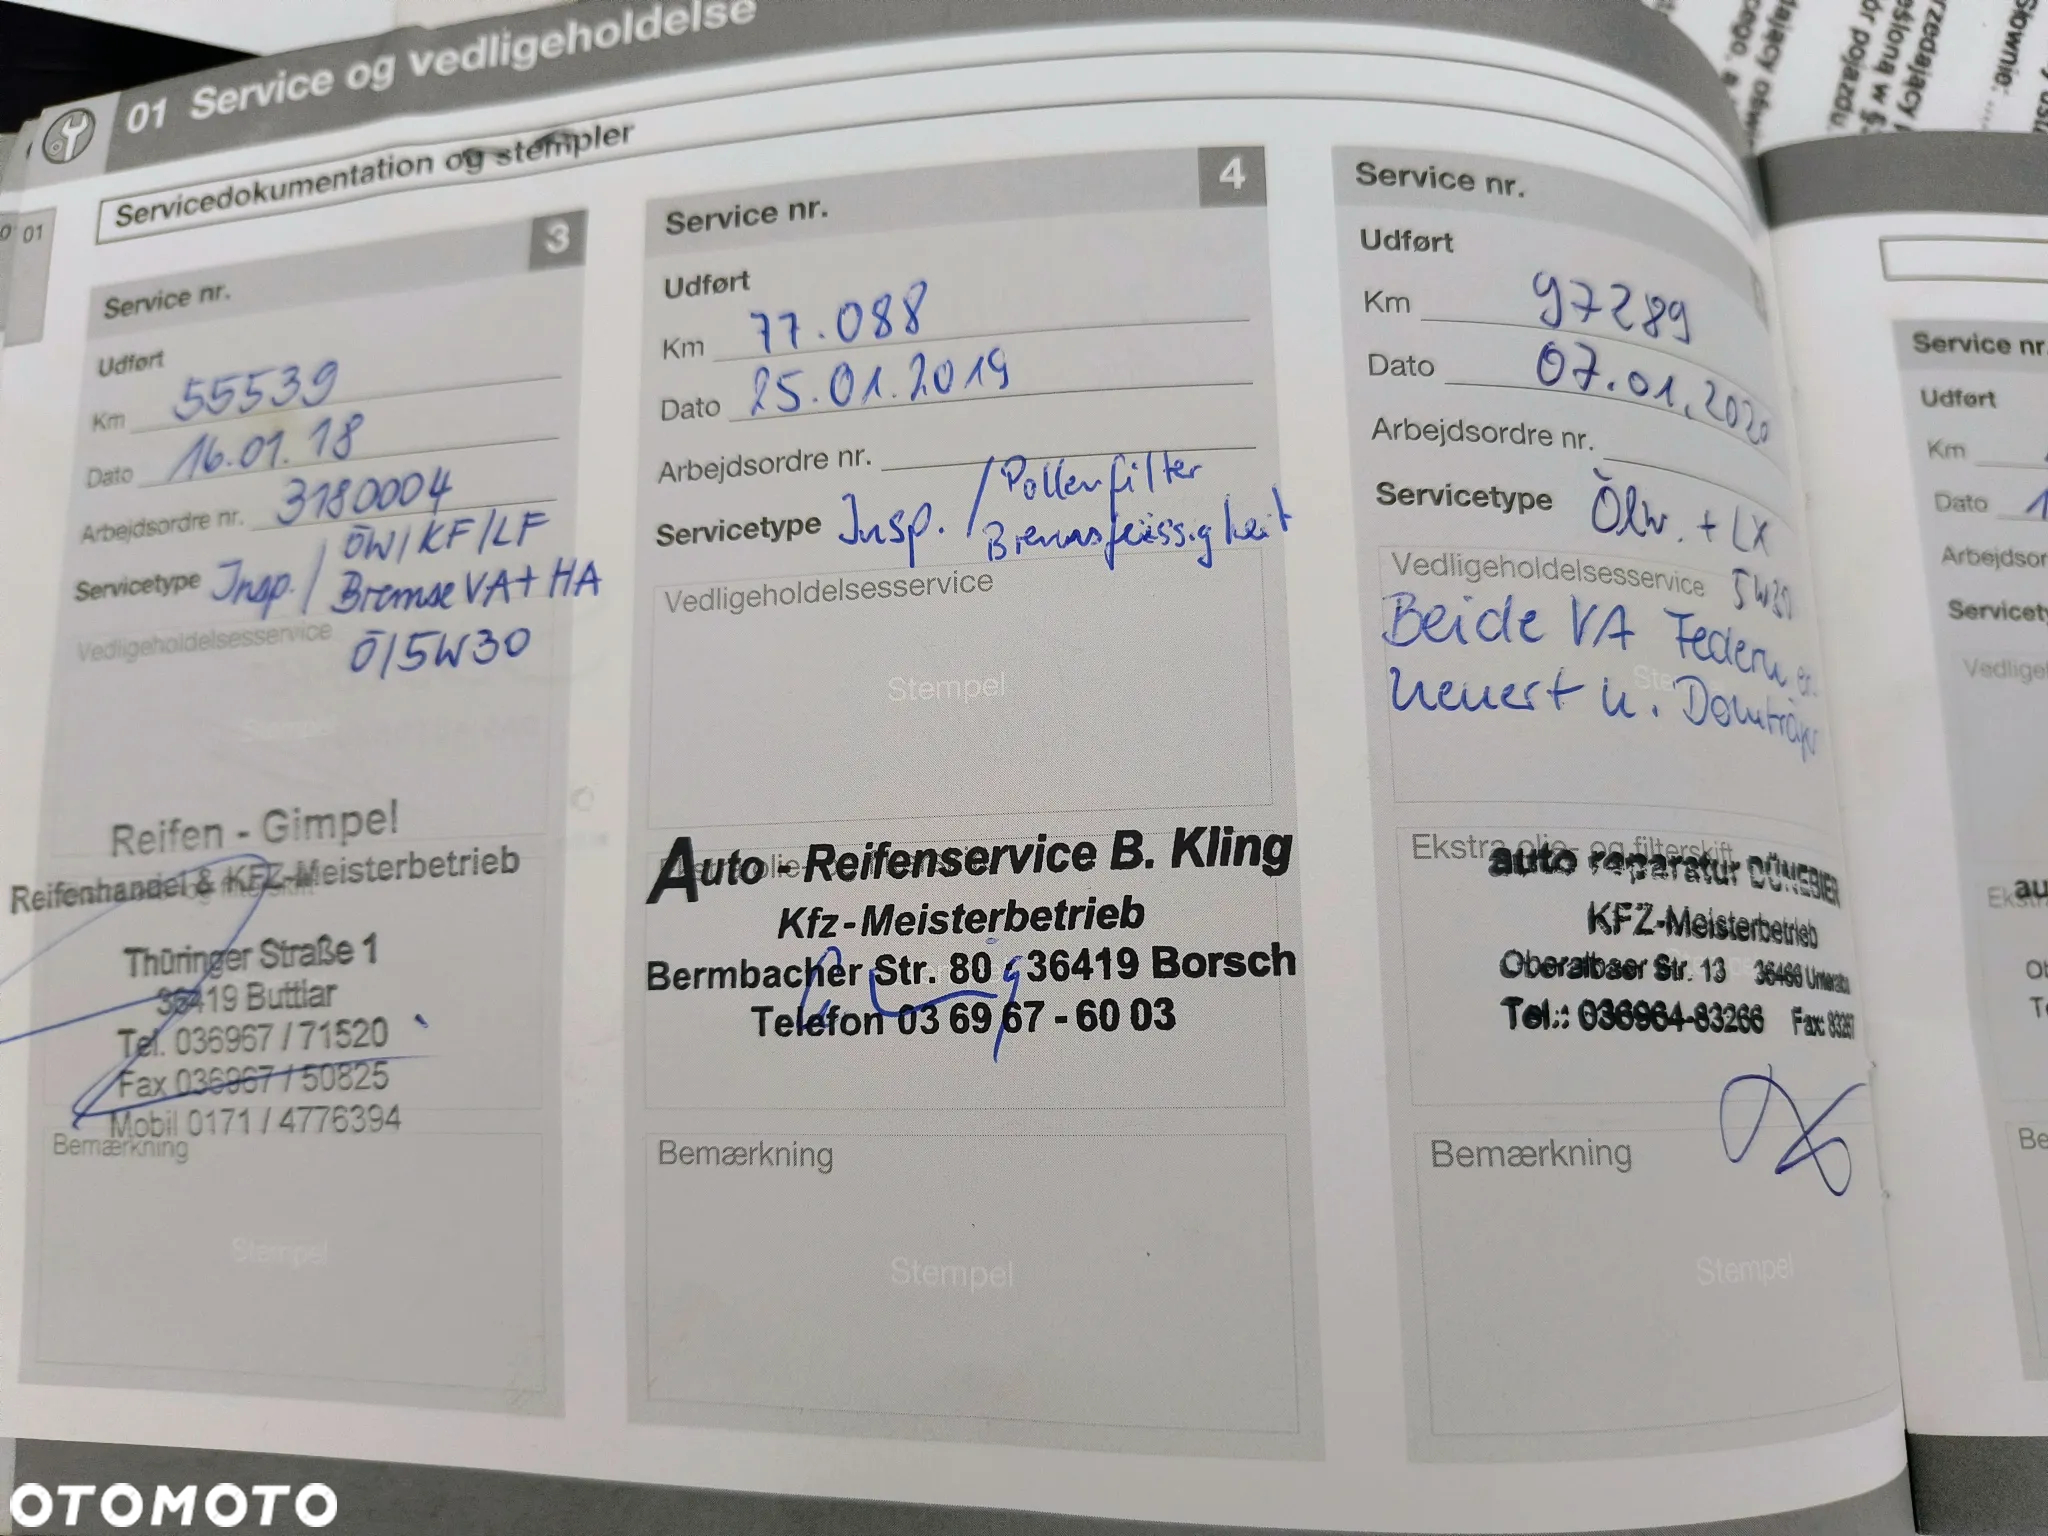 01 Service og vedligeholdelse
Servicedokumentation og stempler
01
3
Service nr.
Udført
Km 55539
Dato 16.01.18
Arbejdsordre nr. 3180004
ÖW/KF/LF
Servicetype Insp./ Bremse VA+HA
Vedligeholdelsesservice
Ö/5W30
Stempel
Reifen - Gimpel
Reifenhandel & KFZ-Meisterbetrieb
Thüringer Straße 1
36419 Buttlar
Tel. 036967 / 71520
Fax 036967 / 50825
Mobil 0171 / 4776394
Bemærkning
Stempel
4
Service nr.
Udført
Km 77.088
Dato 25.01.2019
Arbejdsordre nr.
Servicetype Insp. / Pollenfilter
Bremsflüssigkeit
Vedligeholdelsesservice
Stempel
Auto - Reifenservice B. Kling
Kfz-Meisterbetrieb
Bermbacher Str. 80 36419 Borsch
Telefon 03 69 67 - 60 03
Bemærkning
Stempel
Service nr.
Udført
Km 97289
Dato 07.01.2020
Arbejdsordre nr.
Servicetype Ölw. + LX
Vedligeholdelsesservice 5W30
Beide VA Federn er
neuert u.
Ekstra olie- og filterskift
auto reparatur DÜNEBIER
KFZ-Meisterbetrieb
Oberalbaer Str. 13 36466
Tel.: 036964-83266 Fax: 83267
Bemærkning
Stempel
Service nr.
Udført
Km
Dato
Słownie:
pojazdu.
OTOMOTO